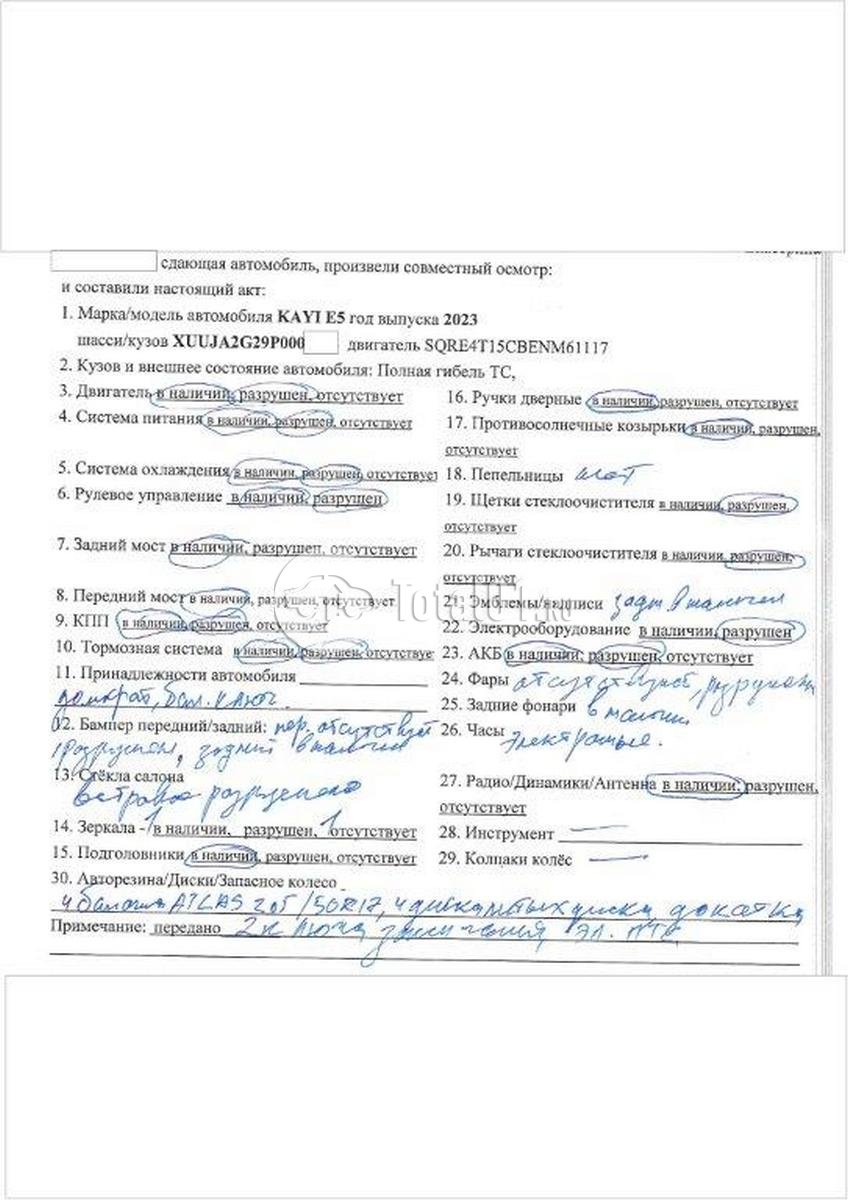 сдающая автомобиль, произвели совместный осмотр:
и составили настоящий акт:
1. Марка/модель автомобиля KAYI E5 год выпуска 2023
шасси/кузов XUUJA2G29P000 двигатель SQRE4T15CBENM61117
2. Кузов и внешнее состояние автомобиля: Полная гибель ТС,
3. Двигатель в наличии, разрушен, отсутствует
4. Система питания в наличии, разрушен, отсутствует
5. Система охлаждения в наличии, разрушен, отсутствует
6. Рулевое управление в наличии, разрушен
7. Задний мост в наличии, разрушен, отсутствует
8. Передний мост в наличии, разрушен, отсутствует
9. КПП в наличии, разрушен, отсутствует
10. Тормозная система в наличии, разрушен, отсутствует
11. Принадлежности автомобиля
домкрат, бал. ключ
12. Бампер передний/задний: пер. отсутствует
разрушен, задний в наличии
13. Стёкла салона
ветровое разрушено
14. Зеркала - 1 в наличии, разрушен, 1 отсутствует
15. Подголовники в наличии, разрушен, отсутствует
16. Ручки дверные в наличии, разрушен, отсутствует
17. Противосолнечные козырьки в наличии, разрушен,
отсутствует
18. Пепельницы нет
19. Щетки стеклоочистителя в наличии, разрушен,
отсутствует
20. Рычаги стеклоочистителя в наличии, разрушен,
отсутствует
21. Эмблемы/надписи задн в наличии
22. Электрооборудование в наличии, разрушен
23. АКБ в наличии, разрушен, отсутствует
24. Фары
25. Задние фонари в наличии
26. Часы электронные.
27. Радио/Динамики/Антенна в наличии, разрушен,
отсутствует
28. Инструмент —
29. Колпаки колёс —
30. Авторезина/Диски/Запасное колесо
4 баллона ATLAS 205/50R17, 4 диска литых диска докатка
Примечание: передано 2 ключа зажигания, эл. ПТС
Total01.ru